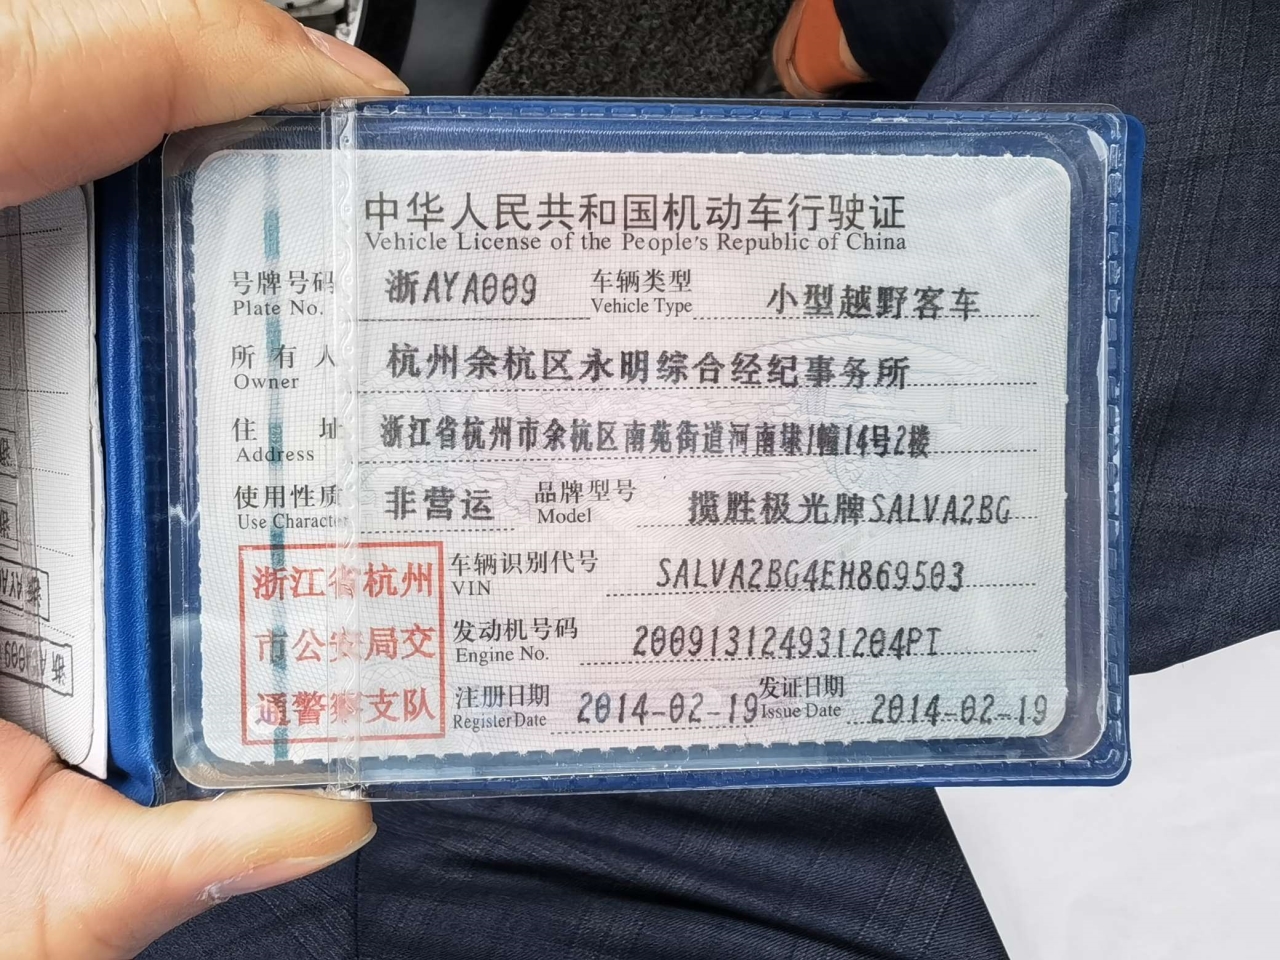 中华人民共和国机动车行驶证
Vehicle License of the People's Republic of China
号牌号码 浙AYA009 车辆类型 小型越野客车
Plate No. Vehicle Type
所有人 杭州余杭区永明综合经纪事务所
Owner
住址 浙江省杭州市余杭区南苑街道河南埭1幢14号2楼
Address
使用性质 非营运 品牌型号 揽胜极光牌SALVA2BG
Use Character Model
浙江省杭州
市公安局交
通警察支队
车辆识别代号 SALVA2BG4EH869503
VIN
发动机号码 200913124931204PT
Engine No.
注册日期 2014-02-19 发证日期 2014-02-19
Register Date Issue Date